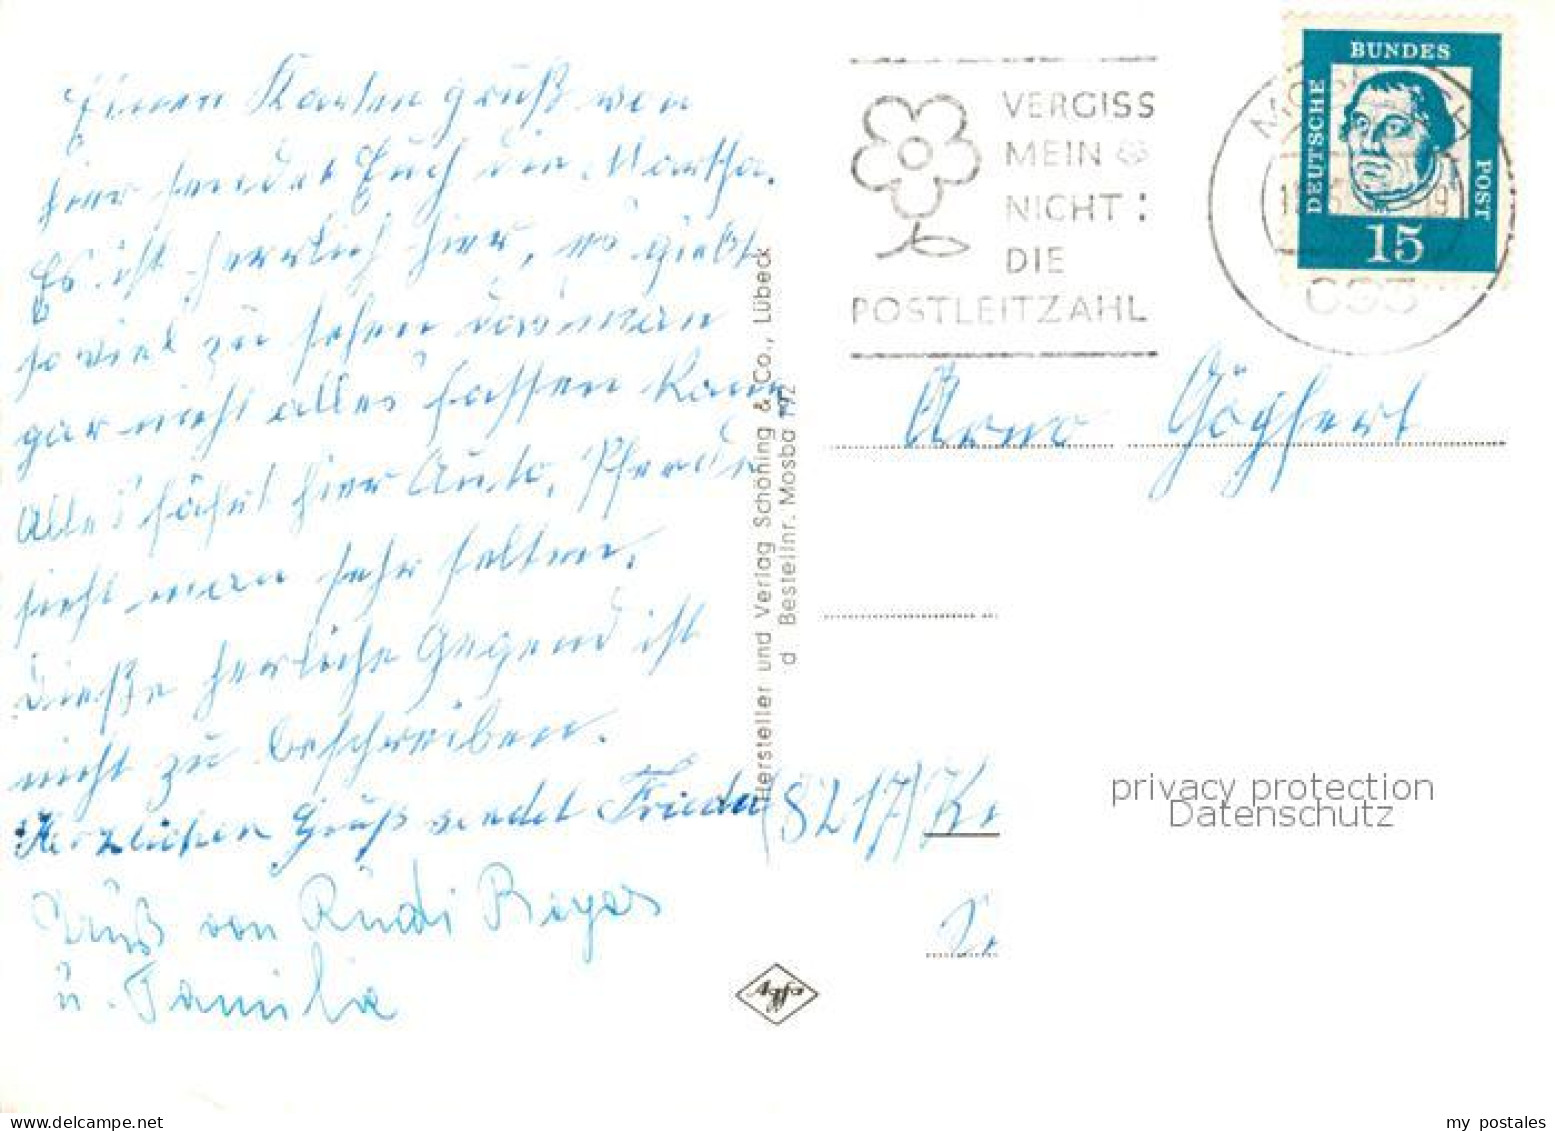 Einen Karten gruß von
hier sendet Euch die Martha.
Es ist herrlich hier, es giebt
so viel zu sehen das man
gar nicht alles fassen kann
Alles fährt hier Auto, Pferde
sieht man sehr selten.
Dieße herliche Gegend ist
nicht zu beschreiben.
Herzlichen Gruß sendet Frieda
Gruß von Rudi
ü. Familie
Hersteller und Verlag Schöning & Co., Lübeck
d Bestellnr. Mosba 192
Agfa
VERGISS
MEIN
NICHT:
DIE
POSTLEITZAHL
DEUTSCHE
BUNDES
POST
15
695
Arno
(8217)
privacy protection
Datenschutz
my postales